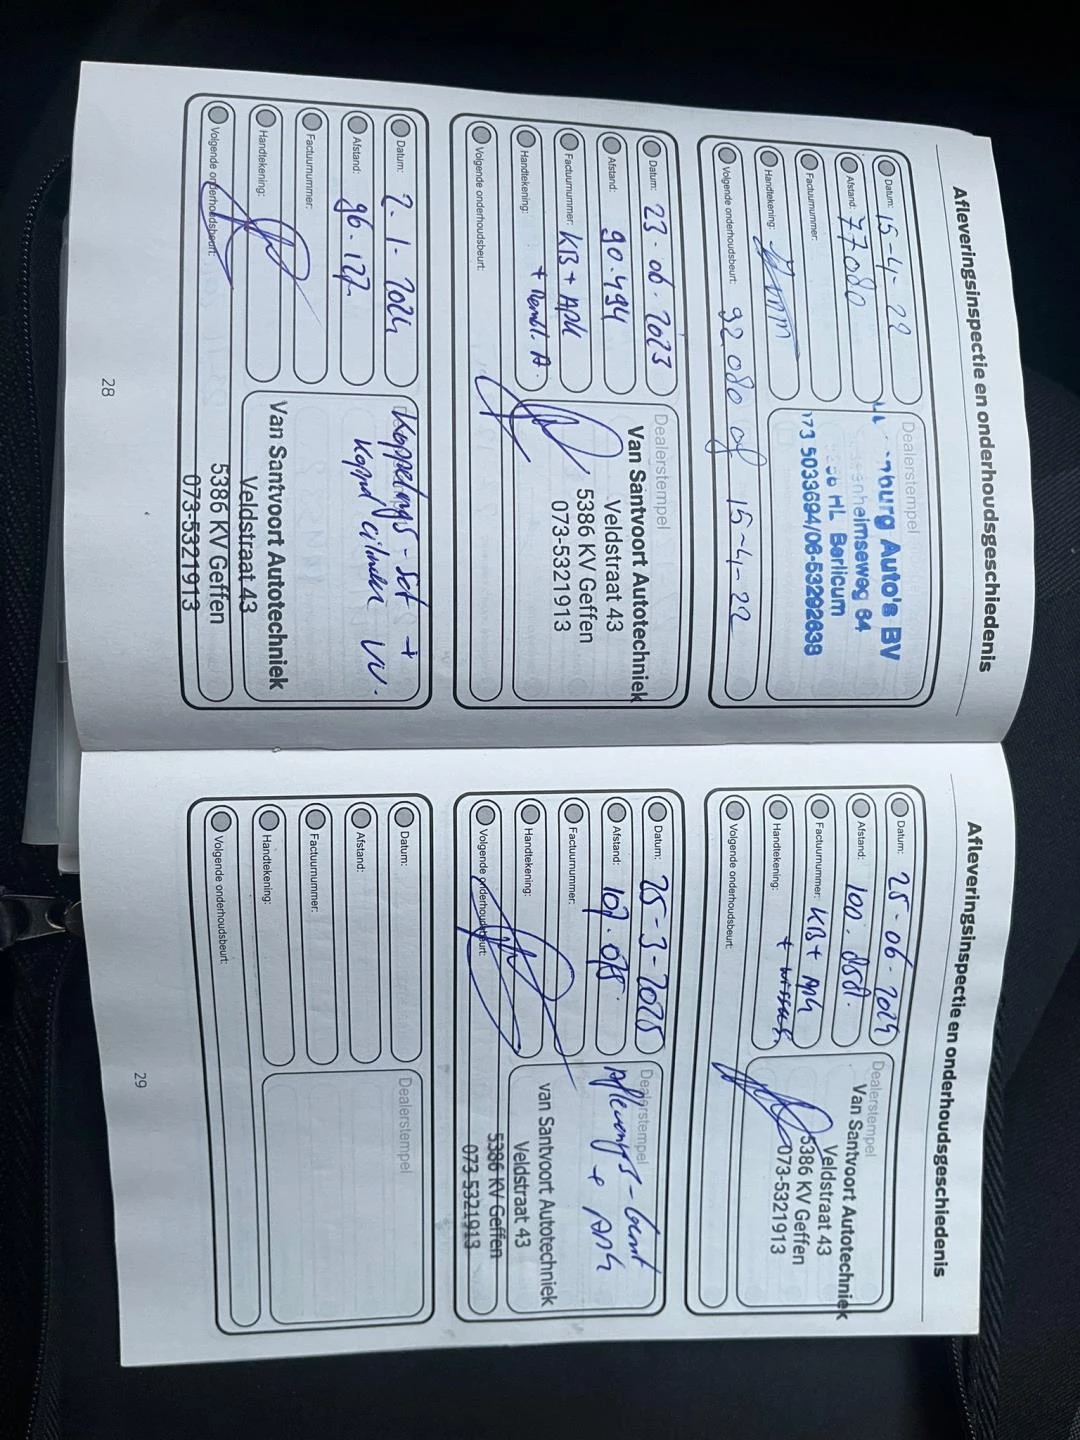 Afleveringsinspectie en onderhoudsgeschiedenis
Datum: 15-4-22
Afstand: 77080
Factuurnummer:
Handtekening:
Volgende onderhoudsbeurt: 92.080 of 15-4-22
Dealerstempel
nburg Auto's BV
enheimseweg 64
HL Berlicum
73 5033694/06-53292639
Datum: 23.06.2023
Afstand: 90.494
Factuurnummer: KB + APK
Handtekening: + Remvl. A.
Volgende onderhoudsbeurt:
Dealerstempel
Van Santvoort Autotechniek
Veldstraat 43
5386 KV Geffen
073-5321913
Datum: 2.1-2024
Afstand: 96.127
Factuurnummer:
Handtekening:
Volgende onderhoudsbeurt:
Koppelings-set +
Koppel cilinder VV.
Van Santvoort Autotechniek
Veldstraat 43
5386 KV Geffen
073-5321913
28
Afleveringsinspectie en onderhoudsgeschiedenis
Datum: 25-06-2024
Afstand: 100.
Factuurnummer: KB + APK
Handtekening: + wissers
Volgende onderhoudsbeurt:
Dealerstempel
Van Santvoort Autotechniek
Veldstraat 43
5386 KV Geffen
073-5321913
Datum: 25-3-2025
Afstand: 107.075
Factuurnummer:
Handtekening:
Volgende onderhoudsbeurt:
Dealerstempel
Afleverings-beurt
+ APK
van Santvoort Autotechniek
Veldstraat 43
5386 KV Geffen
073-5321913
Datum:
Afstand:
Factuurnummer:
Handtekening:
Volgende onderhoudsbeurt:
Dealerstempel
29